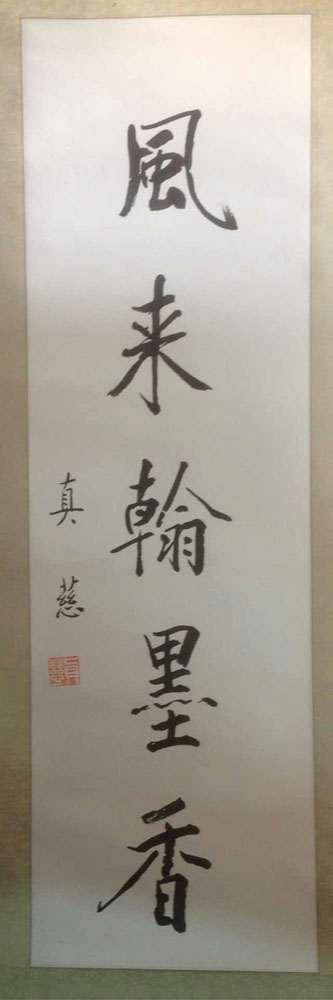 風来翰墨香
真慈